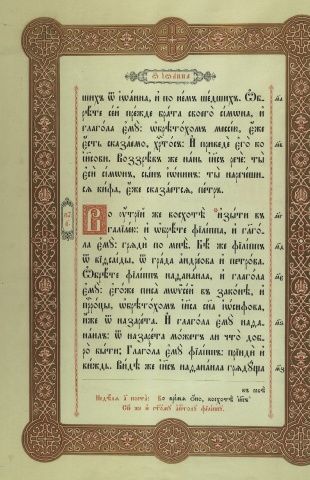 Ѿ ІѠАННА
шихъ ѿ іѡа́нна, и҆ по не́мъ ше́дшихъ. Ѡ҆б-
рѣ́те се́й пре́жде бра́та своего̀ сі́мѡна, и҆
глаго́ла є҆мꙋ̀: ѡ҆брѣто́хомъ мессі́ю, є҆́же
є҆́сть сказа́емо, хрⷭ҇то́съ: И҆ приведѐ є҆го̀ ко
і҆и҃сови. Воззрѣ́въ же на́нь і҆и҃съ речѐ: ты̀
є҆сѝ сі́мѡнъ, сы́нъ і҆ѡ́нинъ: ты̀ нарече́ши-
сѧ ки́фа, є҆́же сказа́етсѧ, пе́тръ.
Во ᲂу҆́трїй же восхотѣ̀ и҆зы́ти въ
галїле́ю: и҆ ѡ҆брѣ́те фїлі́ппа, и҆ гл҃го́-
ла є҆мꙋ̀: грѧдѝ по мнѣ̀. Бѣ́ же фїлі́ппъ
ѿ виѳсаі́ды, ѿ гра́да а҆ндре́ова и҆ петро́ва.
Ѡ҆брѣ́те фїлі́ппъ наѳана́ила, и҆ глаго́ла
є҆мꙋ̀: є҆го́же писа̀ мѡѷсе́й въ зако́нѣ, и҆
прⷪ҇ро́цы, ѡ҆брѣто́хомъ і҆и҃са сн҃а і҆ѡ́сифова,
и҆́же ѿ назаре́та. И҆ глаго́ла є҆мꙋ̀ наѳа-
на́илъ: ѿ назаре́та мо́жетъ ли что̀ добро̀
бы́ти; Глаго́ла є҆мꙋ̀ фїлі́ппъ: прїидѝ и҆
ви́ждь. Ви́дѣ же і҆и҃съ наѳана́ила грѧдꙋ́ща
къ себѣ̀
Недѣ́лѧ а҃ поста̀: Во вре́мѧ ѻ҆́но, восхотѣ̀ і҆и҃съ